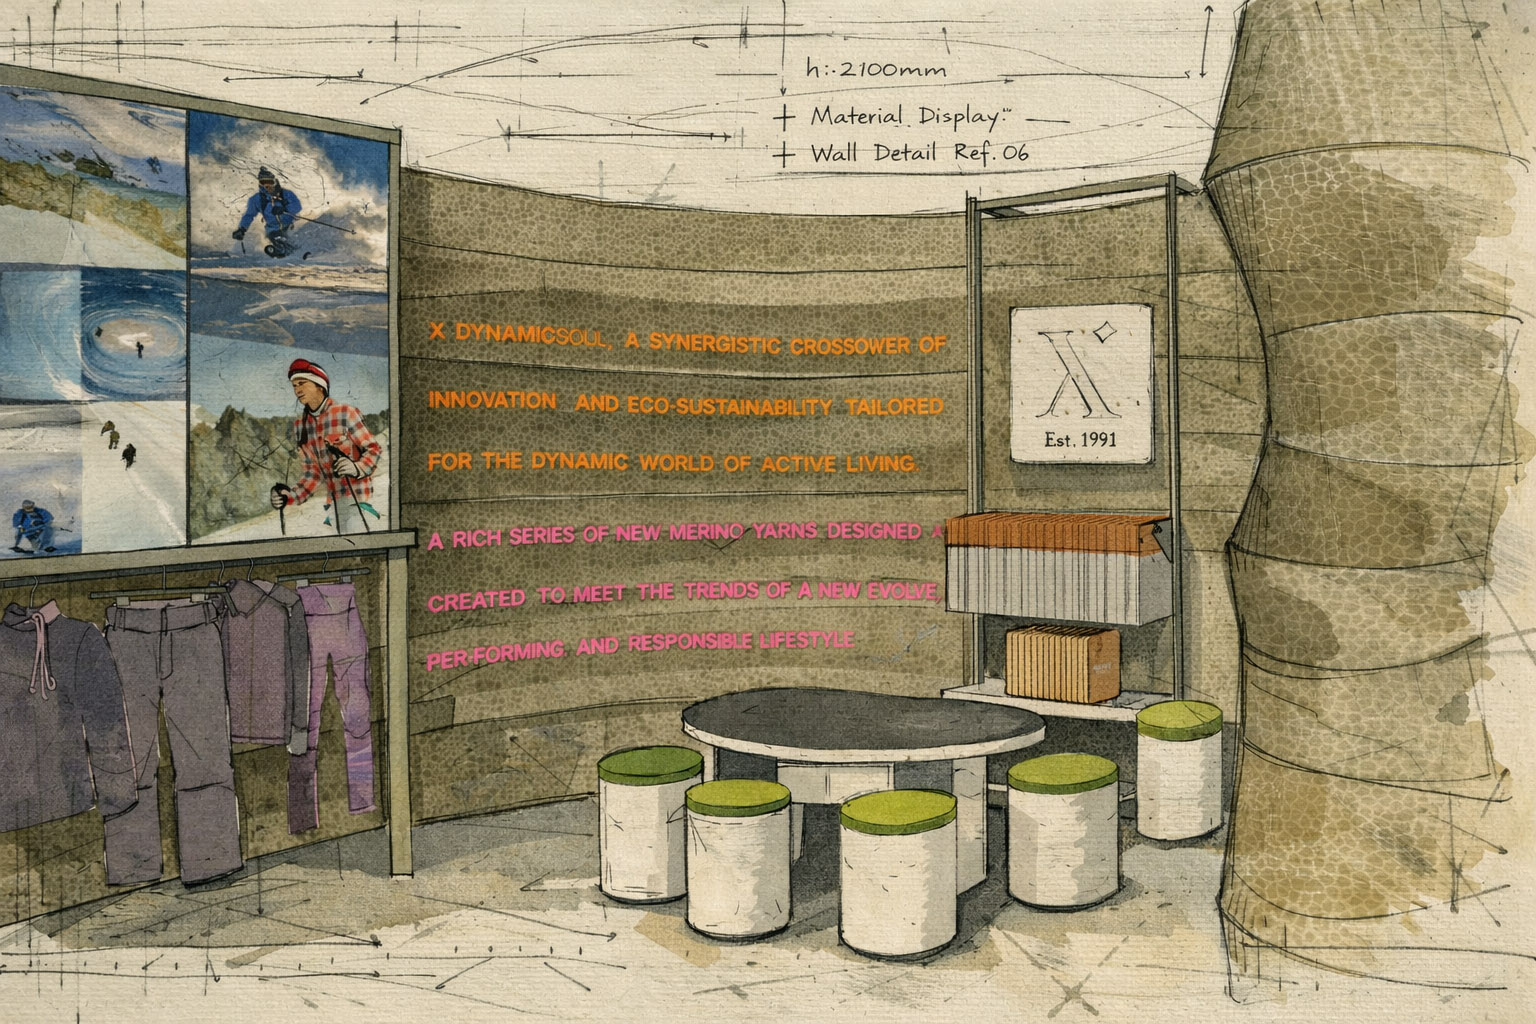 h:.2100mm
+ Material Display:
+ Wall Detail Ref. 06
X DYNAMICSOUL, A SYNERGISTIC CROSSOWER OF
INNOVATION AND ECO-SUSTAINABILITY TAILORED
FOR THE DYNAMIC WORLD OF ACTIVE LIVING.
A RICH SERIES OF NEW MERINO YARNS DESIGNED X
CREATED TO MEET THE TRENDS OF A NEW EVOLVE,
PER-FORMING AND RESPONSIBLE LIFESTYLE
X
Est. 1991